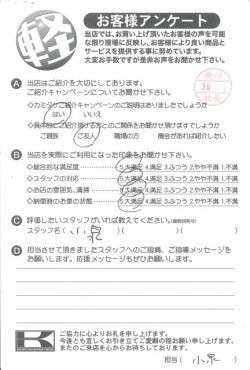 軽
お客様アンケート
当店では、お買い上げ頂いたお客様の声を可能
な限り現場に反映し、お客様により良い商品と
サービスを提供する事に努めています。
大変お手数ですが是非お声をお聞かせ下さい。
A 当店はご紹介を大切にしております。
ご紹介キャンペーンについてお聞かせ下さい。
はい いいえ
ご親族 ご友人 職場の方 機会があれば紹介したい
B 当店を実際にご利用になった印象をお聞かせ下さい。
◇総合的な満足度 5.大満足 4.満足 3.ふつう 2.やや不満 1.不満
◇スタッフの対応 5.大満足 4.満足 3.ふつう 2.やや不満 1.不満
◇お店の雰囲気、清掃 5.大満足 4.満足 3.ふつう 2.やや不満 1.不満
◇納車時のお車の状態 5.大満足 4.満足 3.ふつう 2.やや不満 1.不満
C 評価したいスタッフがいれば教えてください。
スタッフ名( 小泉 )( )
D 担当させて頂きましたスタッフへのご指摘、ご指導メッセージを
お願いします。応援メッセージもぜひお願いします。
K
ご協力に心よりお礼を申し上げます。
今後とも宜しくお引き立てご愛顧の程お願い申し上げます。
またのご来店を心からお待ちしております。
担当( 小泉 )